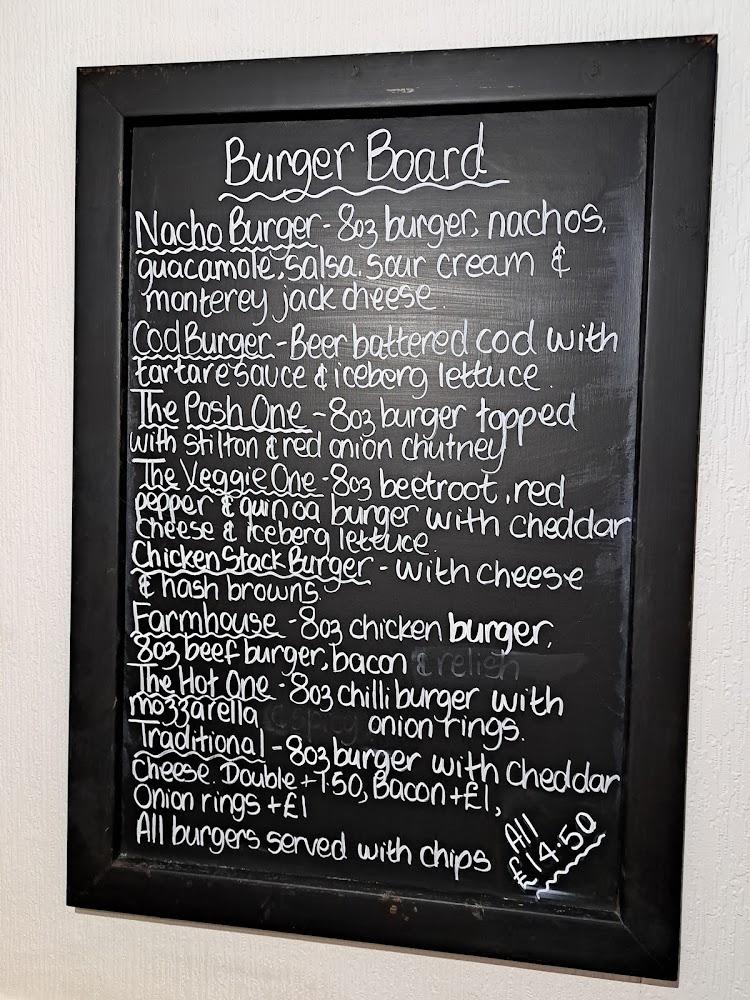 Burger Board
Nacho Burger - 8oz burger, nachos,
guacamole, salsa, sour cream &
monterey jack cheese.
Cod Burger - Beer battered cod with
tartare sauce & iceberg lettuce.
The Posh One - 8oz burger topped
with stilton & red onion chutney
The Veggie One - 8oz beetroot, red
pepper & quinoa burger with cheddar
cheese & iceberg lettuce.
Chicken Stack Burger - with cheese
& hash browns.
Farmhouse - 8oz chicken burger,
8oz beef burger, bacon & relish
The Hot One - 8oz chilli burger with
mozzarella & spicy onion rings.
Traditional - 8oz burger with Cheddar
Cheese. Double +7.50, Bacon +£1,
Onion rings +£1
All burgers served with chips
All
£14.50